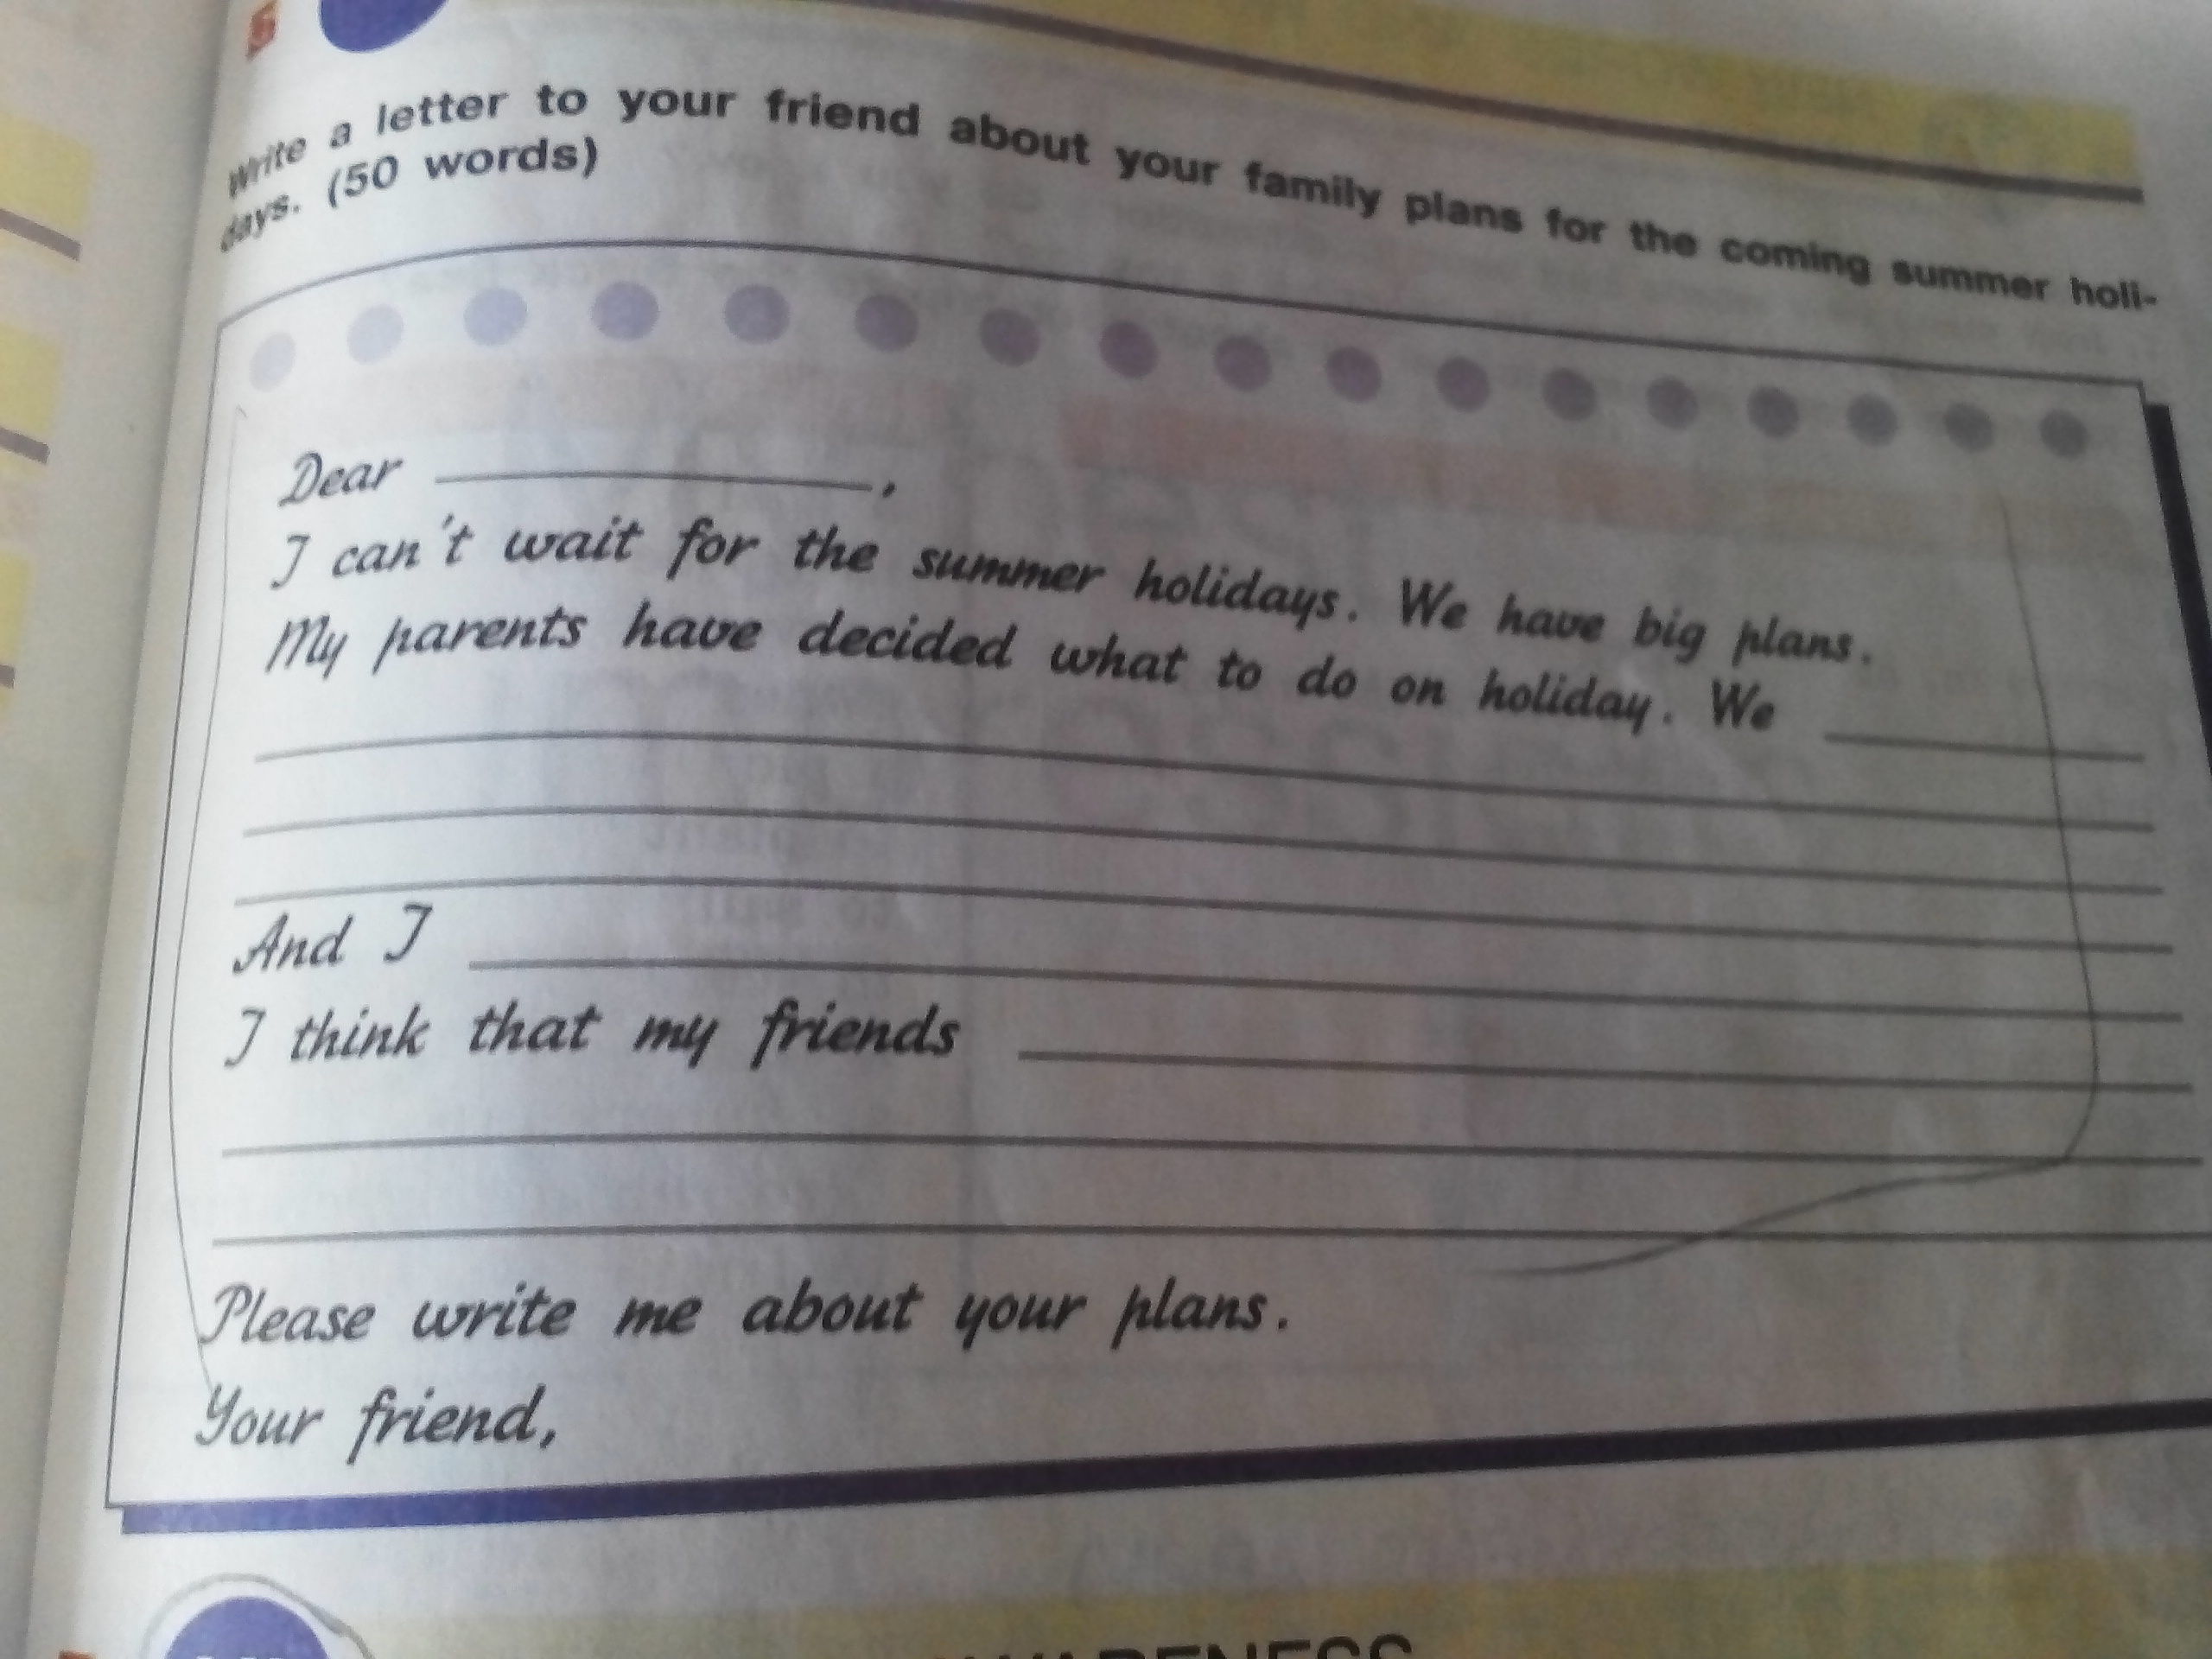 Write a letter to your friend about your family plans for the coming summer holi-
days. (50 words)
Dear ,
I can't wait for the summer holidays. We have big plans.
My parents have decided what to do on holiday. We
And I
I think that my friends
Please write me about your plans.
Your friend,